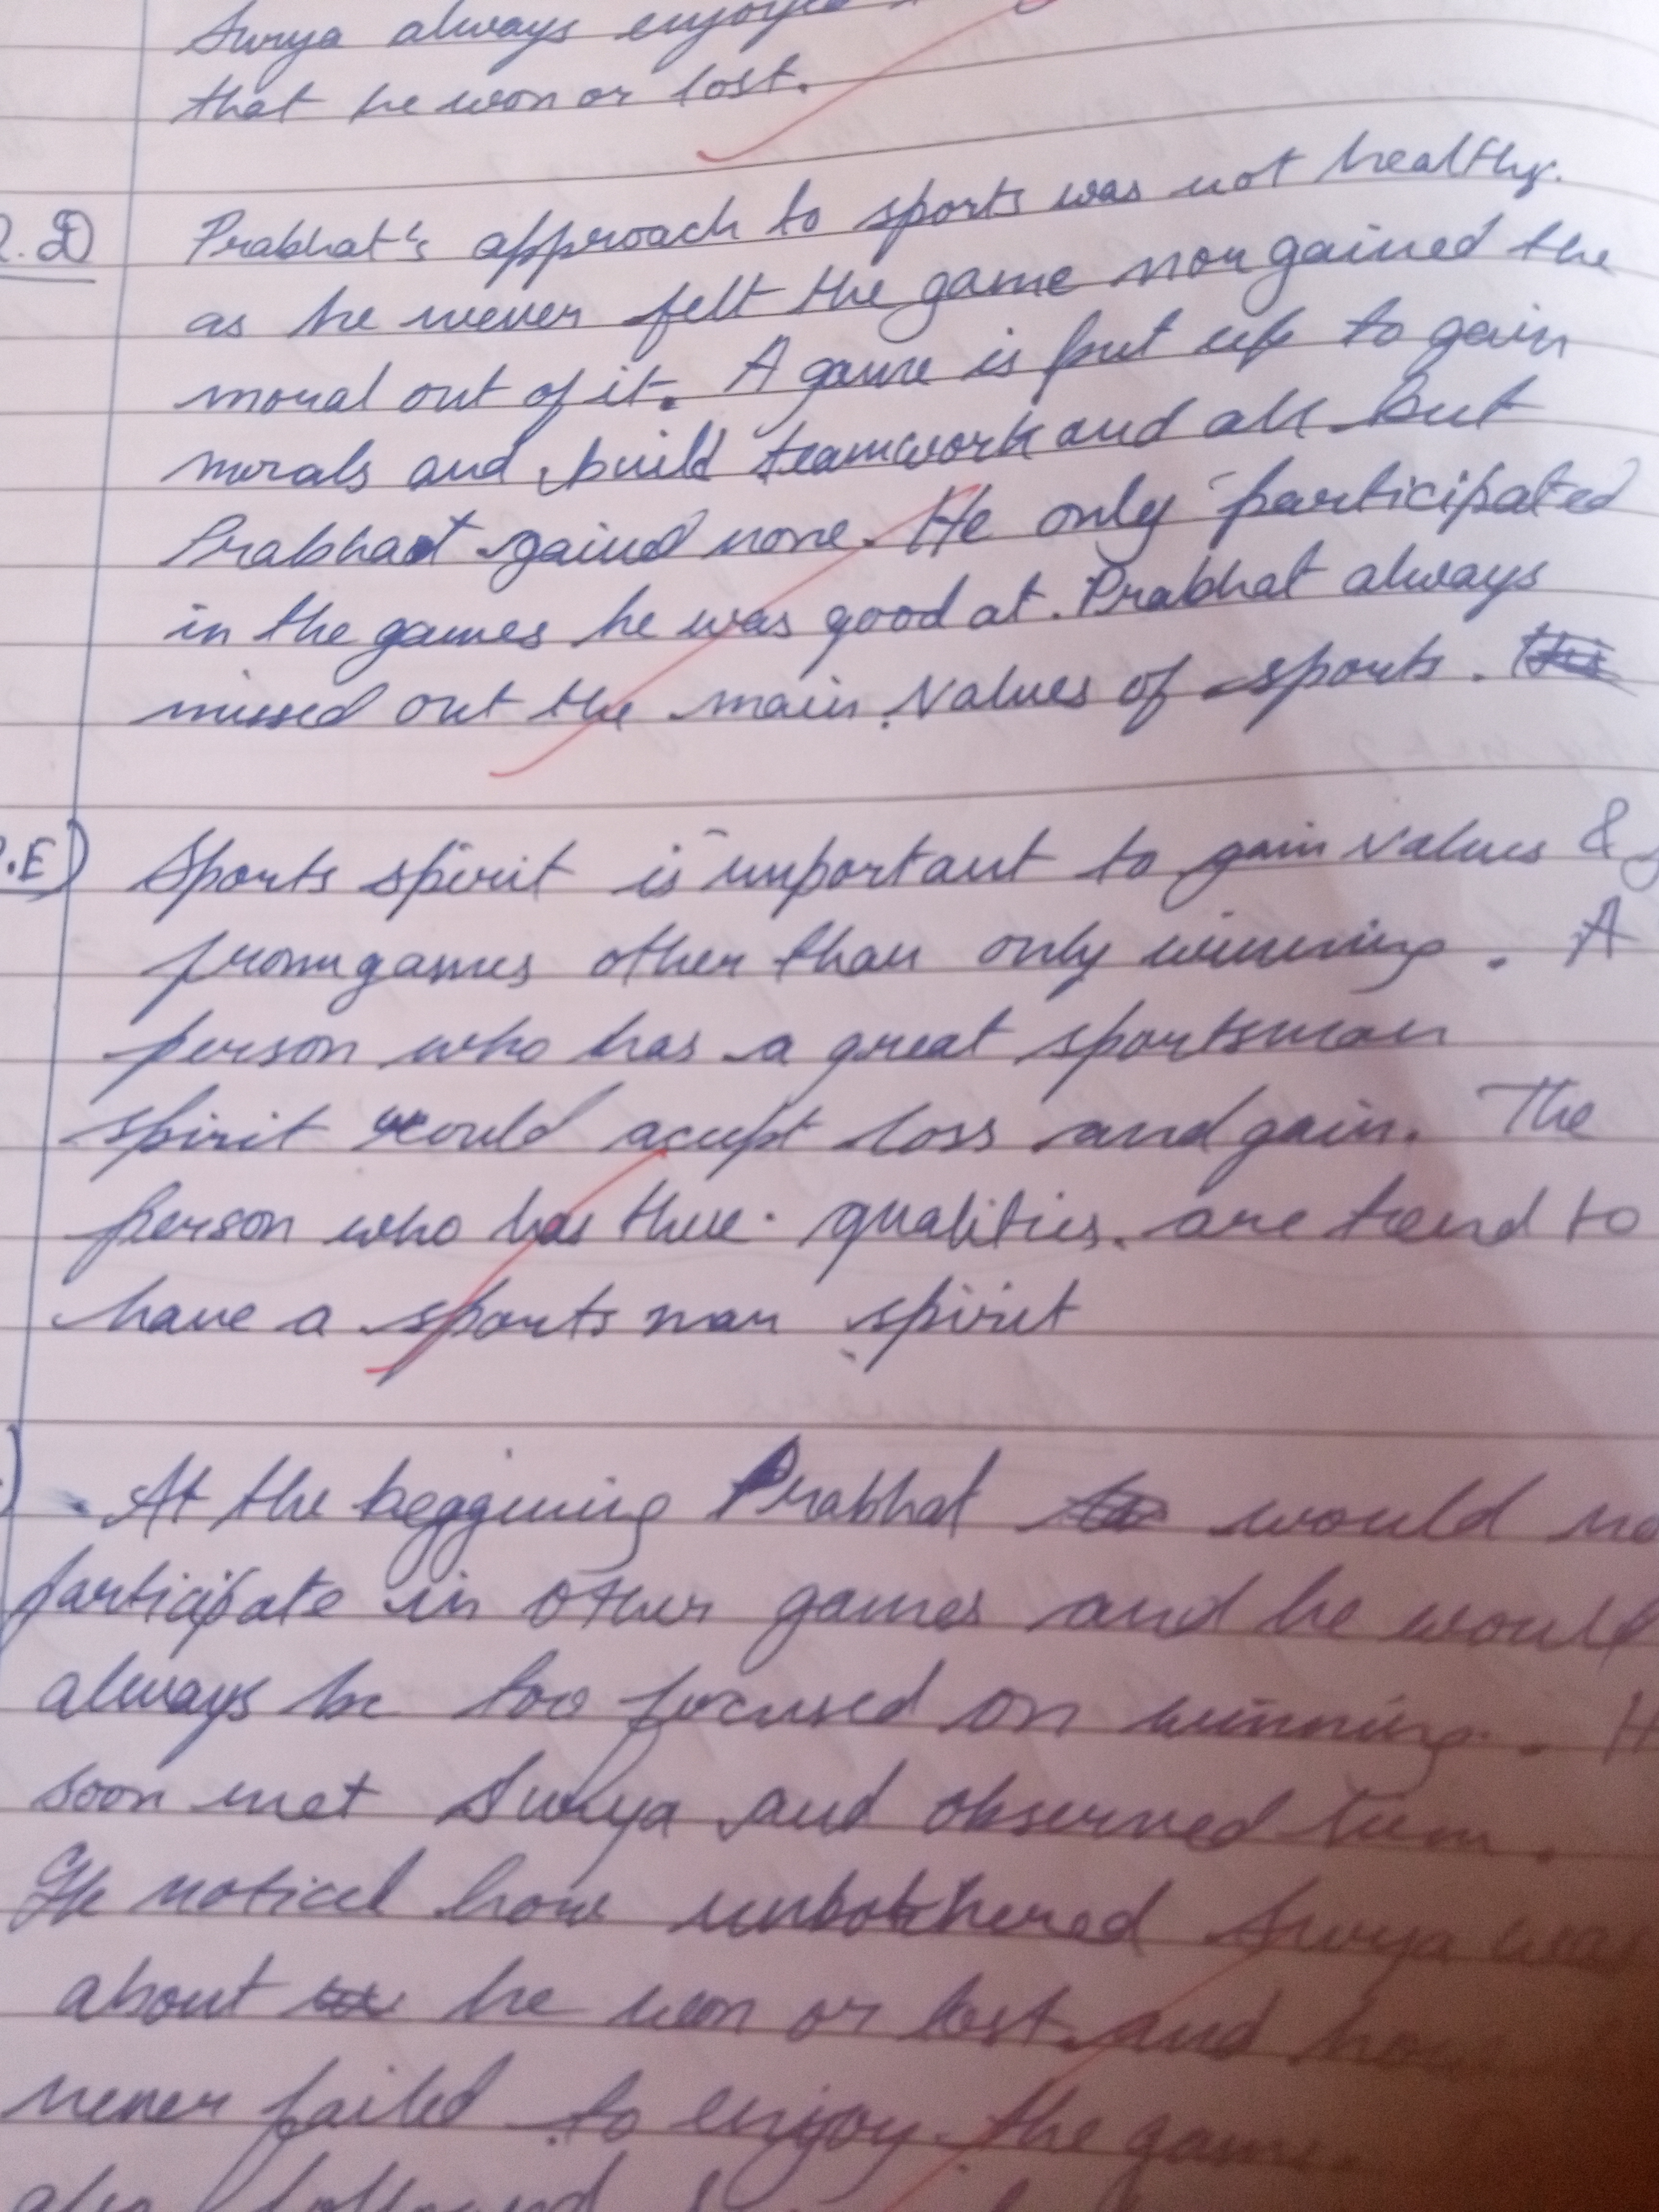 Surya always enjoyed
that he won or lost.
.D Prabhat's approach to sports was not healthy.
as he never felt the game nor gained the
moral out of it. A game is put up to gain
morals and build teamwork and all. But
Prabhat gained none. He only participated
in the games he was good at. Prabhat always
missed out the main values of sports.
.E) Sports spirit is important to gain values &
from games other than only winning. A
person who has a great sportsman
spirit would acept loss and gain. The
person who has these qualities. are tend to
have a sports man spirit
) At the beggining Prabhat would no
participate in other games and he would
always be too focused on winning. H
soon met Surya and observed him.
He noticed how unbothered Surya was
about he won or lost and how
never failed to enjoy the game.
also followed